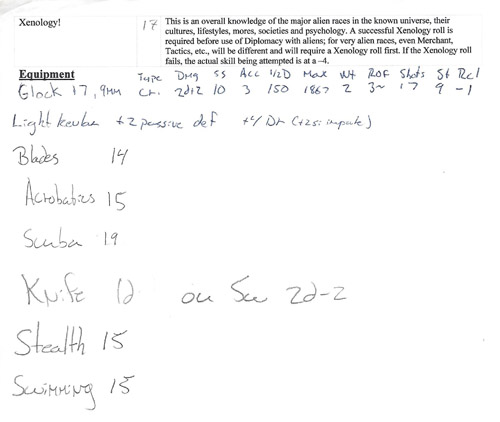 Xenology! 17 This is an overall knowledge of the major alien races in the known universe, their
cultures, lifestyles, mores, societies and psychology. A successful Xenology roll is
required before use of Diplomacy with aliens; for very alien races, even Merchant,
Tactics, etc., will be different and will require a Xenology roll first. If the Xenology roll
fails, the actual skill being attempted is at a –4.
Equipment Type Dmg SS Acc 1/2D Max Wt ROF Shots St Rcl
Glock 17, 9mm Cr. 2d+2 10 3 150 1867 2 3~ 17 9 -1
Light kevlar +2 passive def +4 DR
Blades 14
Acrobatics 15
Scuba 19
Knife 1d 2d-2
Stealth 15
Swimming 15